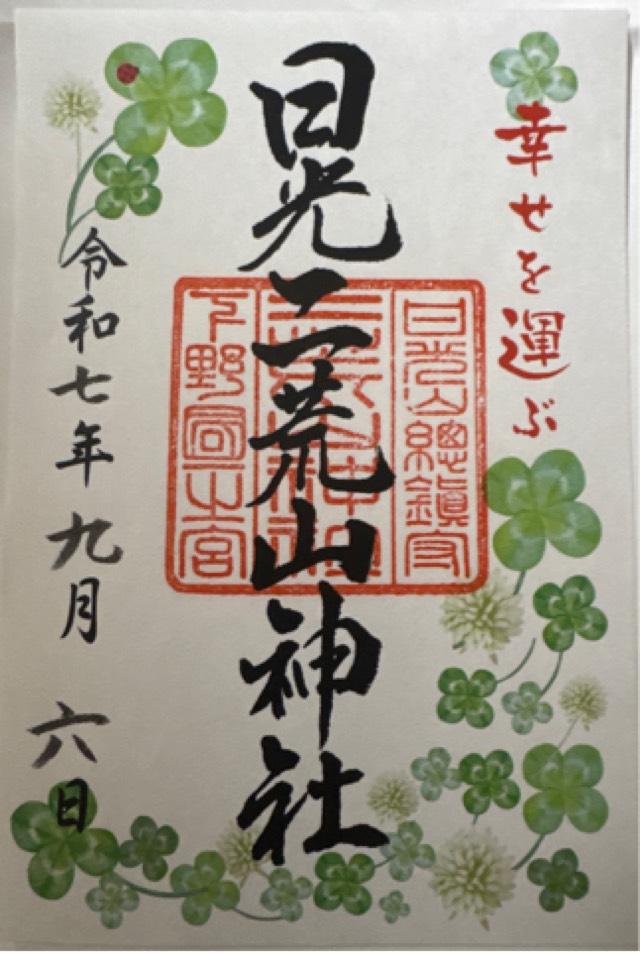 幸せを運ぶ
日光二荒山神社
日光山總鎮守
二荒山神社
下野國一之宮
令和七年九月六日